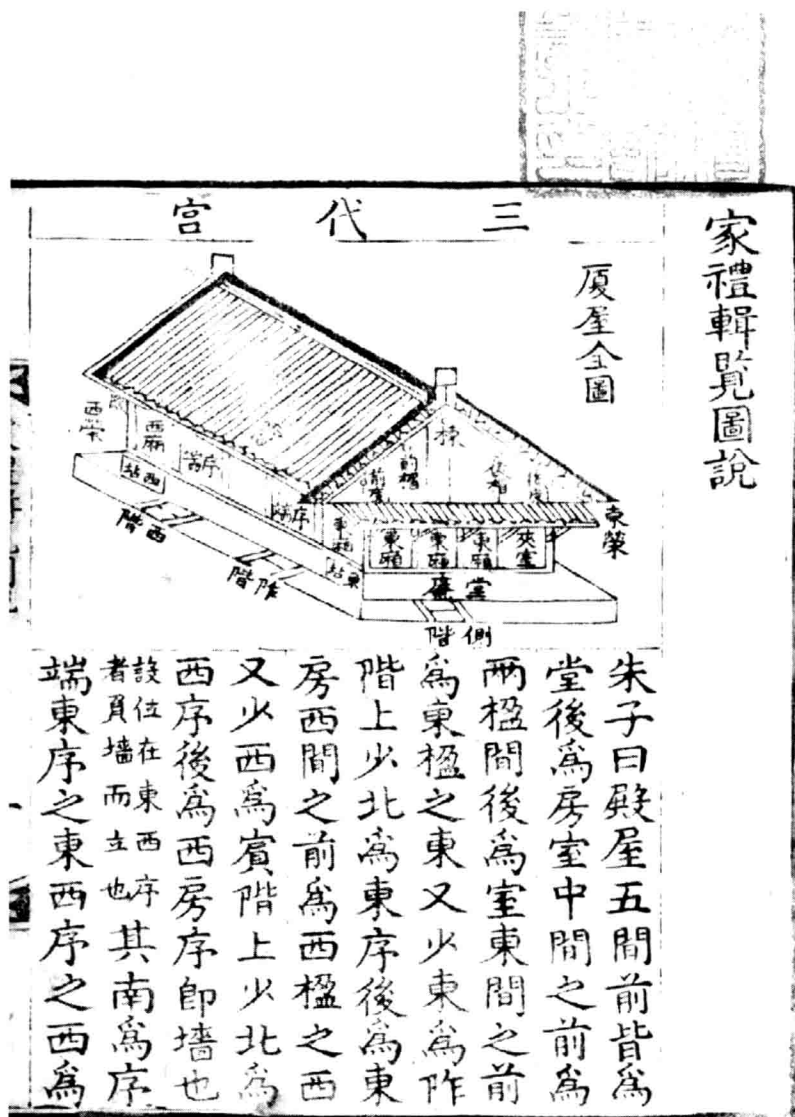 家禮輯覽圖說
三代宮
厦屋全圖
棟
東榮
西榮
西廂
西站
序端
序端
前楹
夾室
東廂
東廂
東廂
東站
堂廉
西階
阼階
側階
朱子曰殿屋五間前皆爲
堂後爲房室中間之前爲
兩楹間後爲室東間之前
爲東楹之東又少東爲阼
階上少北爲東序後爲東
房西間之前爲西楹之西
又少西爲賓階上少北爲
西序後爲西房序卽墻也
設位在東西序
者負墻而立也
其南爲序
端東序之東西序之西爲